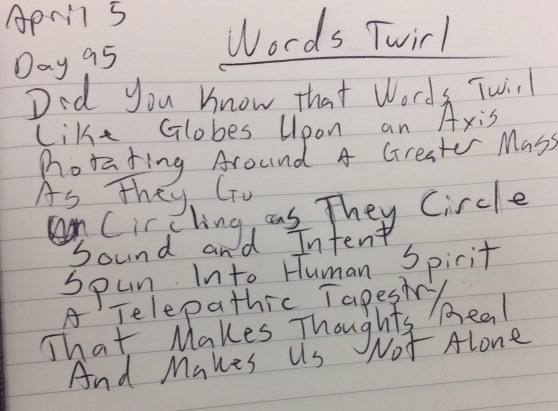 April 5
Day 95
Words Twirl
Did You Know That Words Twirl
Like Globes Upon an Axis
Rotating Around A Greater Mass
As They Go
Circling as They Circle
Sound and Intent
Spun Into Human Spirit
A Telepathic Tapestry
That Makes Thoughts Real
And Makes Us Not Alone